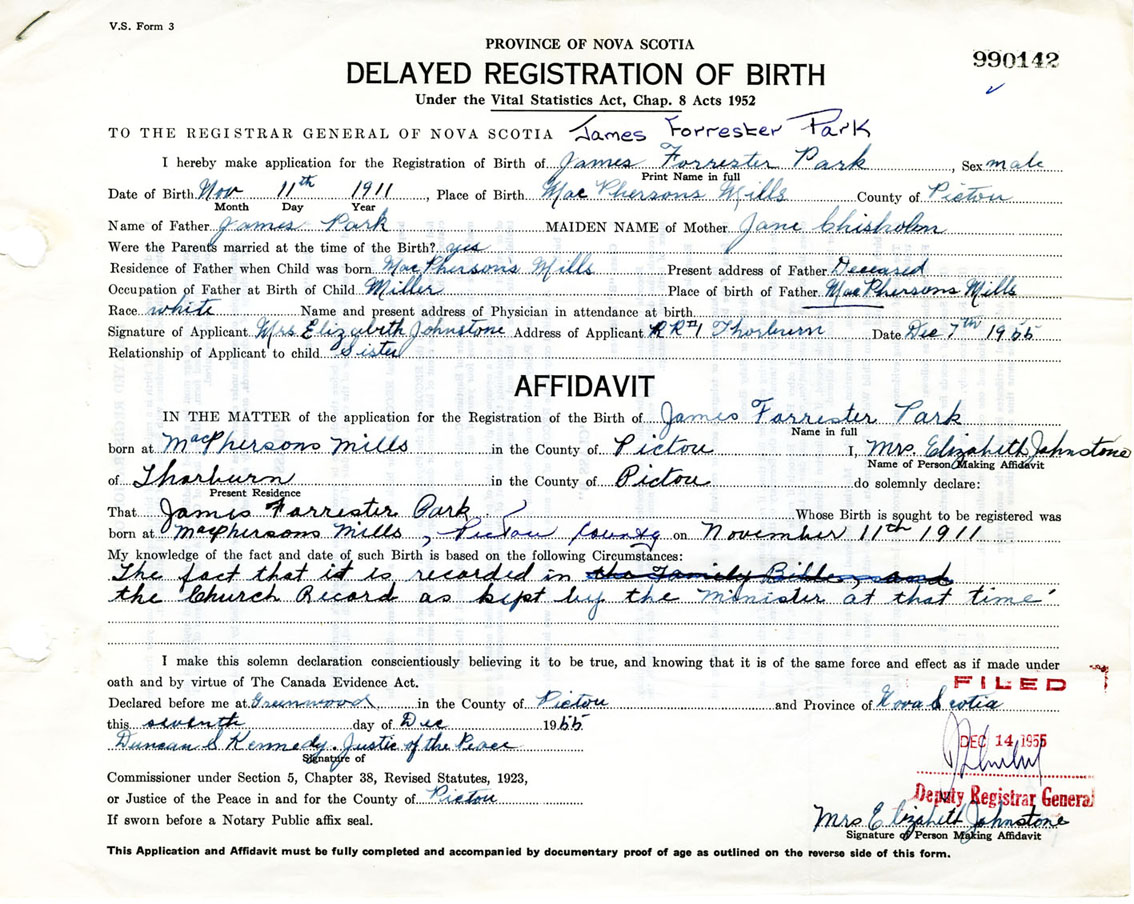 V.S. Form 3
PROVINCE OF NOVA SCOTIA
990142
DELAYED REGISTRATION OF BIRTH
Under the Vital Statistics Act, Chap. 8 Acts 1952
TO THE REGISTRAR GENERAL OF NOVA SCOTIA James Forrester Park
I hereby make application for the Registration of Birth of James Forrester Park, Sex male
Print Name in full
Date of Birth Nov 11th 1911, Place of Birth MacPhersons Mills County of Pictou
Month Day Year
Name of Father James Park MAIDEN NAME of Mother Jane Chisholm
Were the Parents married at the time of the Birth? yes
Residence of Father when Child was born MacPherson's Mills Present address of Father Deceased
Occupation of Father at Birth of Child Miller Place of birth of Father MacPhersons Mills
Race white Name and present address of Physician in attendance at birth
Signature of Applicant Mrs. Elizabeth Johnstone Address of Applicant RR#1 Thorburn Date Dec 7th 1955
Relationship of Applicant to child Sister
AFFIDAVIT
IN THE MATTER of the application for the Registration of the Birth of James Forrester Park
Name in full
born at MacPhersons Mills in the County of Pictou I, Mrs. Elizabeth Johnstone
Name of Person Making Affidavit
of Thorburn in the County of Pictou do solemnly declare:
Present Residence
That James Forrester Park Whose Birth is sought to be registered was
born at MacPhersons Mills, Pictou County on November 11th 1911
My knowledge of the fact and date of such Birth is based on the following Circumstances:
The fact that it is recorded in the Family Bible, and
the Church Record as kept by the Minister at that time
I make this solemn declaration conscientiously believing it to be true, and knowing that it is of the same force and effect as if made under
oath and by virtue of The Canada Evidence Act.
FILED
Declared before me at Greenwood, in the County of Pictou and Province of Nova Scotia
this seventh day of Dec 1955
DEC 14 1955
Duncan S Kennedy. Justic of the Peace
Signature of
Commissioner under Section 5, Chapter 38, Revised Statutes, 1923,
Deputy Registrar General
or Justice of the Peace in and for the County of Pictou
Mrs Elizabeth Johnstone
If sworn before a Notary Public affix seal.
Signature of Person Making Affidavit
This Application and Affidavit must be fully completed and accompanied by documentary proof of age as outlined on the reverse side of this form.